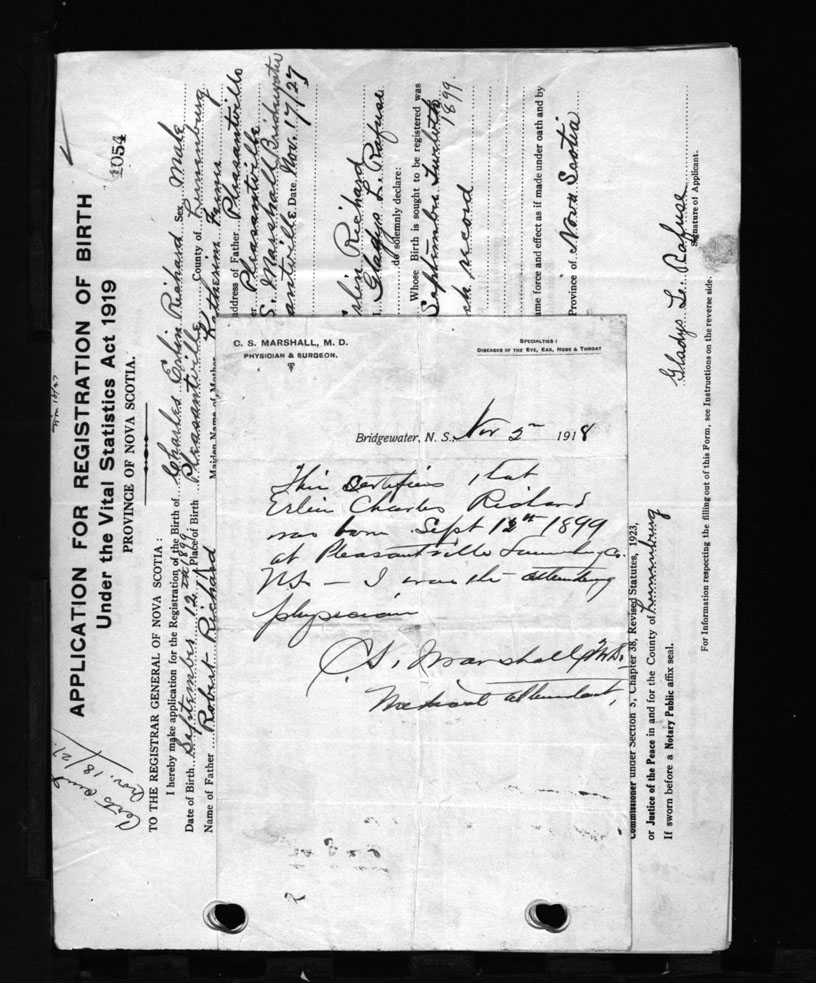 1054
APPLICATION FOR REGISTRATION OF BIRTH
Under the Vital Statistics Act 1919
PROVINCE OF NOVA SCOTIA.
TO THE REGISTRAR GENERAL OF NOVA SCOTIA:
I hereby make application for the Registration of the Birth of Charles Erlin Richard Sex Male
Date of Birth September 12th 1899 Place of Birth Pleasantville County of Lunenburg
Name of Father Robert Richard Maiden Name of Mother Katherine
address of Father Pleasantville
Pleasantville
S. Marshall Bridgewater
antville Date Nov. 17/27
Erlin Richard
I, Gladys L. Rafuse
do solemnly declare:
Whose Birth is sought to be registered was
September Twelfth
1899.
record
ame force and effect as if made under oath and by
Province of Nova Scotia
Commissioner under Section 3, Chapter 38, Revised Statutes, 1923,
or Justice of the Peace in and for the County of Lunenburg
If sworn before a Notary Public affix seal.
Gladys L. Rafuse
Signature of Applicant.
For Information respecting the filling out of this Form, see Instructions on the reverse side.
Nov. 18/27
C. S. MARSHALL, M. D.
PHYSICIAN & SURGEON.
SPECIALTIES:
DISEASES OF THE EYE, EAR, NOSE & THROAT
Bridgewater, N. S., Nov 2nd 1918
This Certifies that
Erlin Charles Richard
was born Sept 12th 1899
at Pleasantville Lunenburg Co.
N.S. — I was the attending
physician
C.S. Marshall M.D.
Medical attendant,